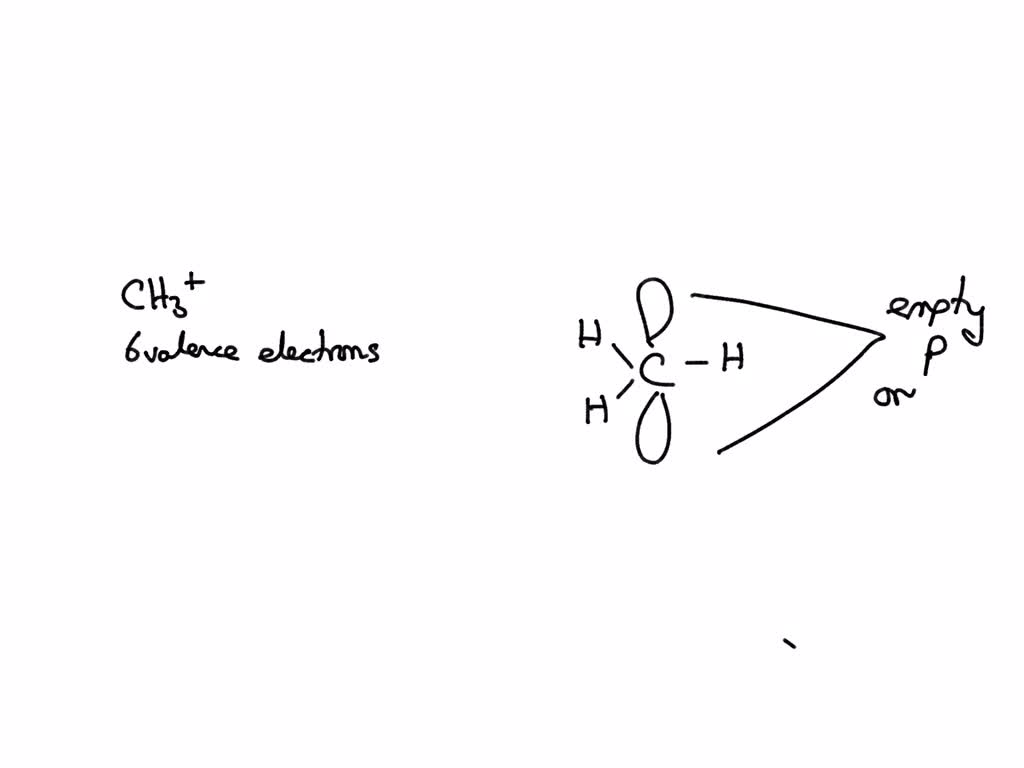 CH3+
6 valence electrons
H
C - H
H
empty
p
or